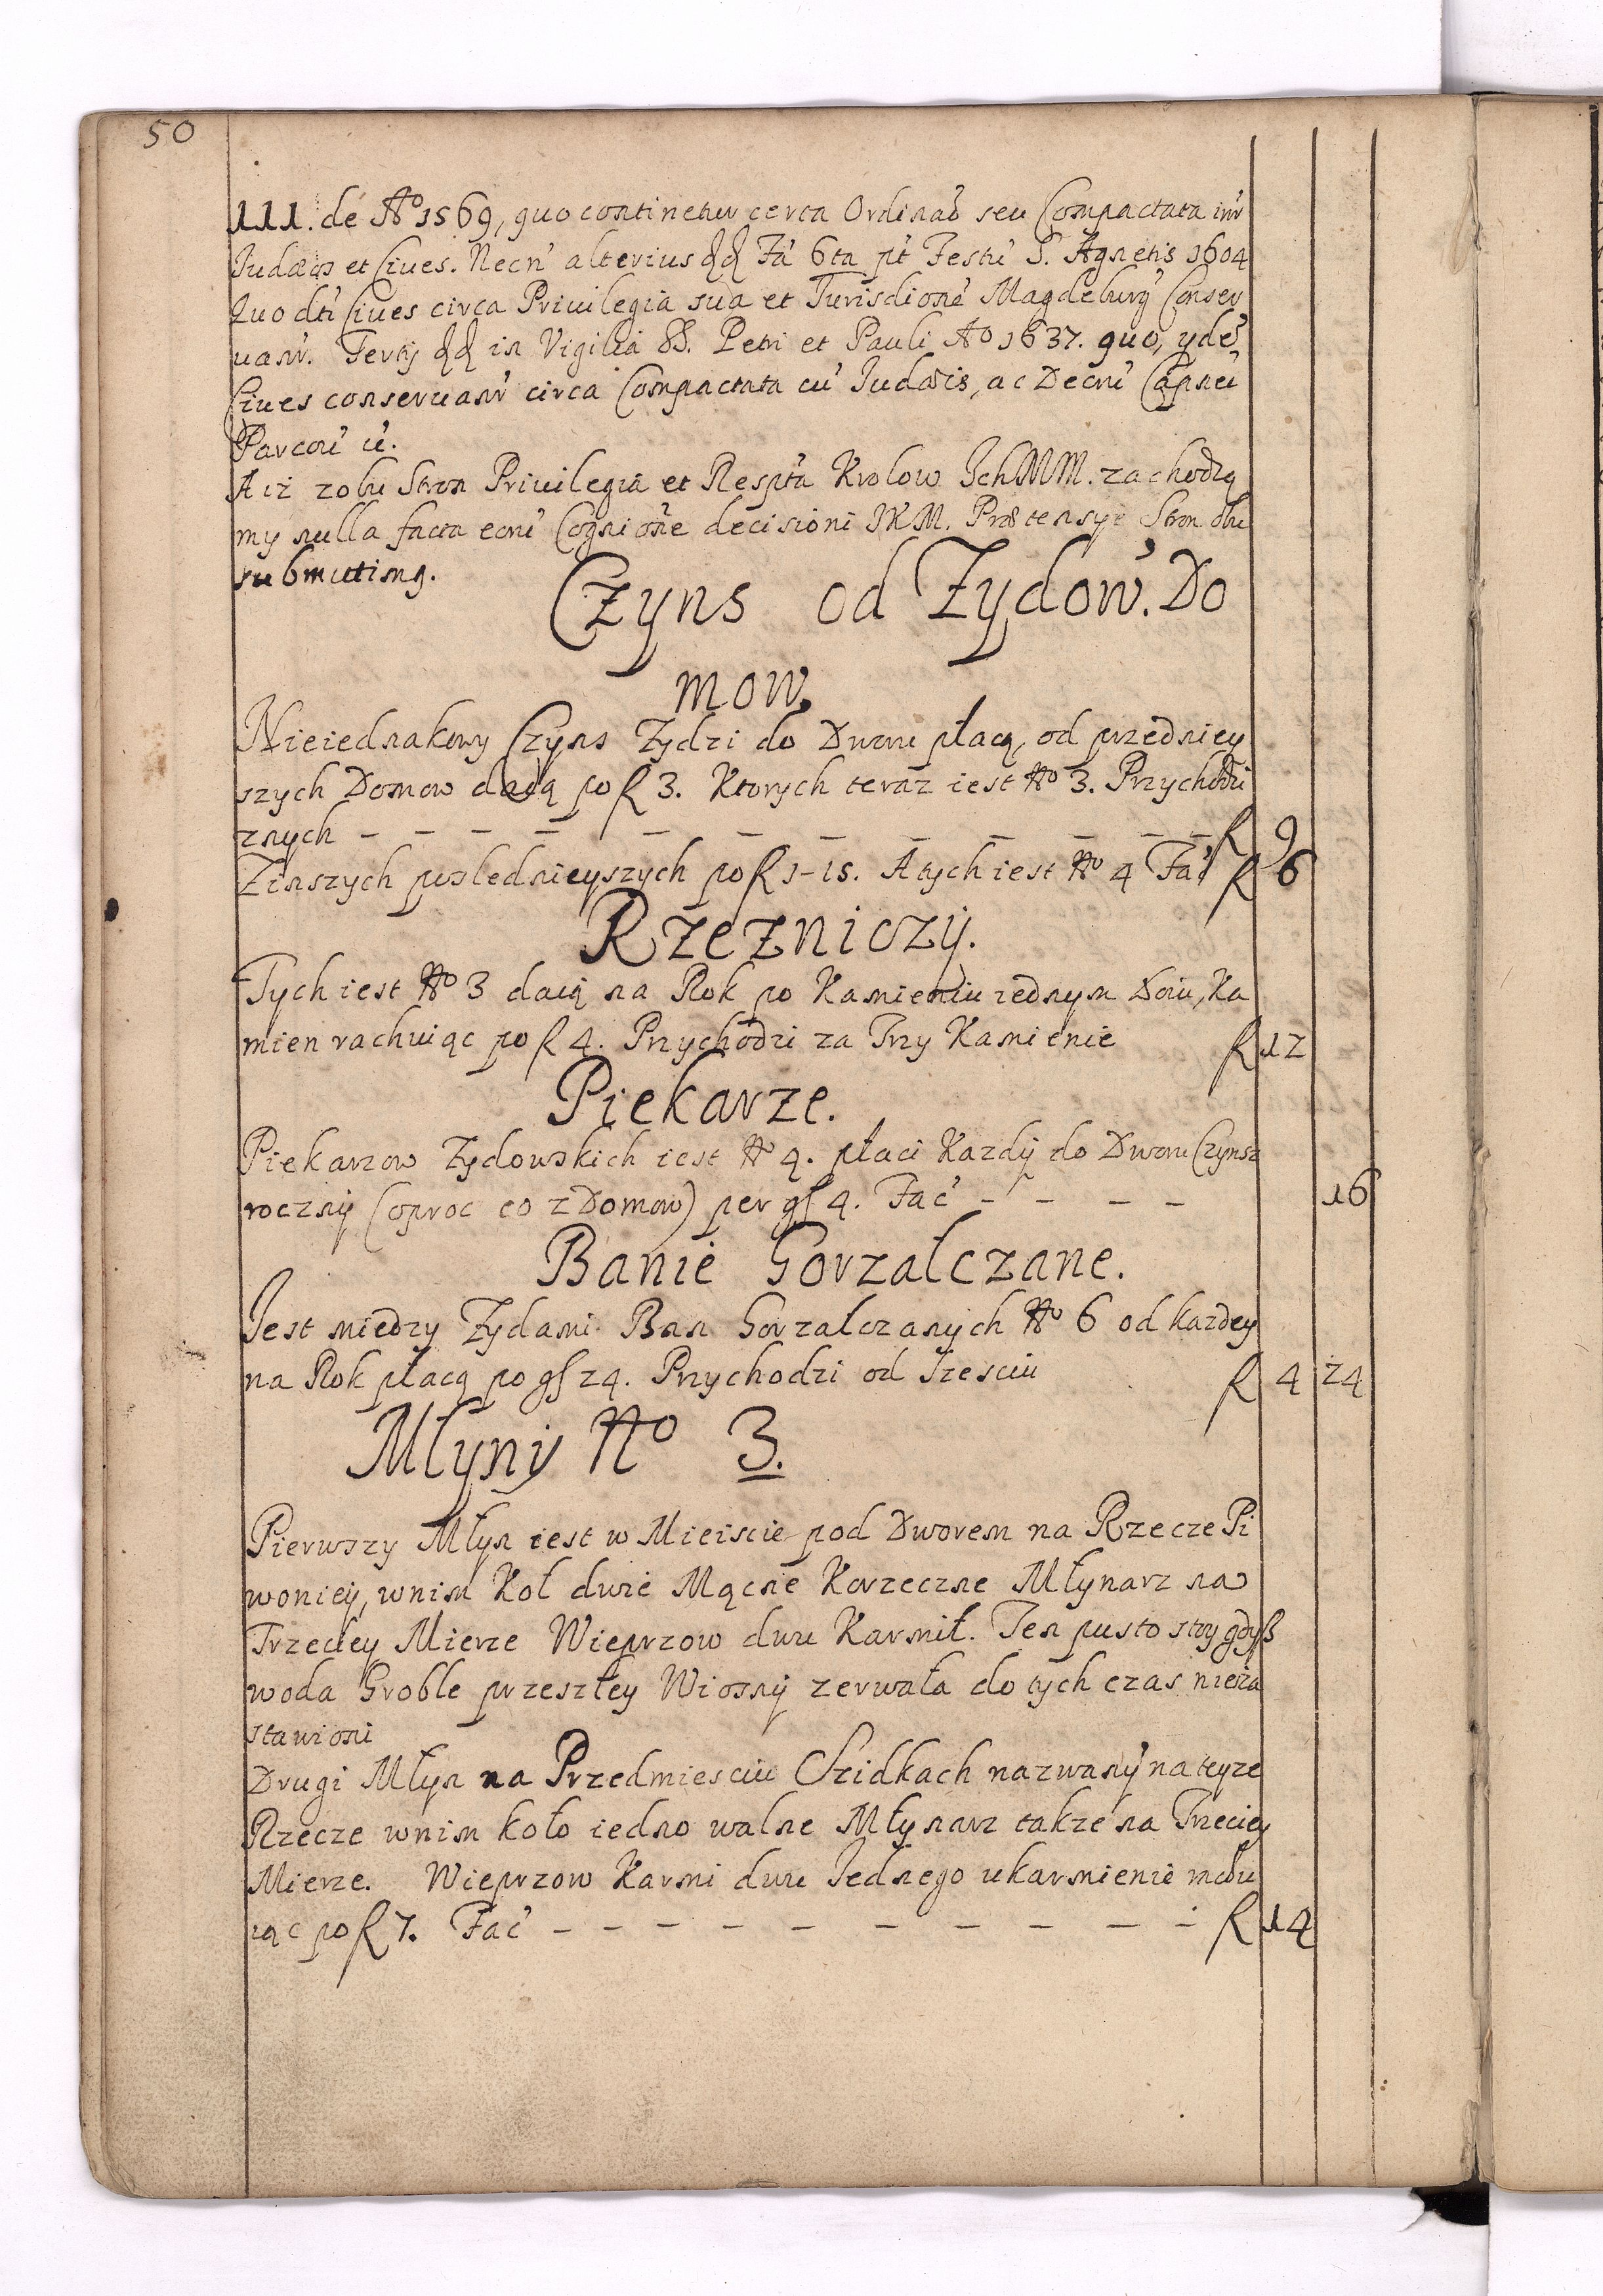 50
111. de Aº 1569, quo continetur certa Ordinaõ seu Compactata inr̃
Judæos et Cives. Necn' alterius Fa' 6ta pt' Festu' S. Agnetis 1604
Quo dti Cives circa Privilegia sua et Jurisdione' Magdeburg' Conser
vanr'. Tertij in Vigilia SS. Petri et Pauli Aº 1637. quo, yde'
Cives conservanr' circa Compactata cu' Judæis, ac Decru'
A iż zobu Stron Privilegia et Respta Krolow Ich MM. zachodzą
my nulla facta eoru' Cognione decisioni JKM. Prætensye Stron obu
submittimg.
Czyns od Zydow. Do
mow.
Nieiednakowy Czyns Zydzi do Dworu płacą, od przedniey
szych Domow daią po f 3. Ktorych teraz iest Nº 3. Przychodzi
znych — — — — — — — — — — — — f 9
Zinszych poslednieyszych po f 1-15. A tych iest Nº 4 Fac' f 6
Rzezniczÿ.
Tych iest Nº 3 daią na Rok po Kamieniu iednym Łoiu, Ka
mien rachuiąc po f 4. Przychodzi za Trzy Kamienie f 12
Piekarze.
Piekarzow Zydowskich iest Nº 4. płaci Kazdÿ do Dworu Czynsz
rocznÿ (oproc co z Domow) per gſ 4. Fac' — — — — 16
Banie Gorzalczane.
Jest miedzy Zydami Ban Gorzalczanych Nº 6 od kazdey
na Rok płacą po gſ 24. Przychodzi od Szesciu f 4 24
Młynÿ Nº 3.
Pierwszy Młyn iest w Mieiscie pod Dworem na Rzecze Pi
woniey, wnim Koł dwie Mącne Korzeczne Młynarz na
Trzeciey Mierze Wieprzow dwu Karmił. Ten pusto stoy gdyß
woda Groble przeszłey Wiosnÿ zerwała do tych czas nieza
stawioni
Drugi Młyn na Przedmiesciu Szidkach nazwanÿ na teyze
Rzecze wnim koło iedno walne Młynarz takze na Trzeciey
Mierze. Wieprzow Karmi dwu Jednego ukarmienie
iąc po f 7. Fac' — — — — — — — — — — f 14